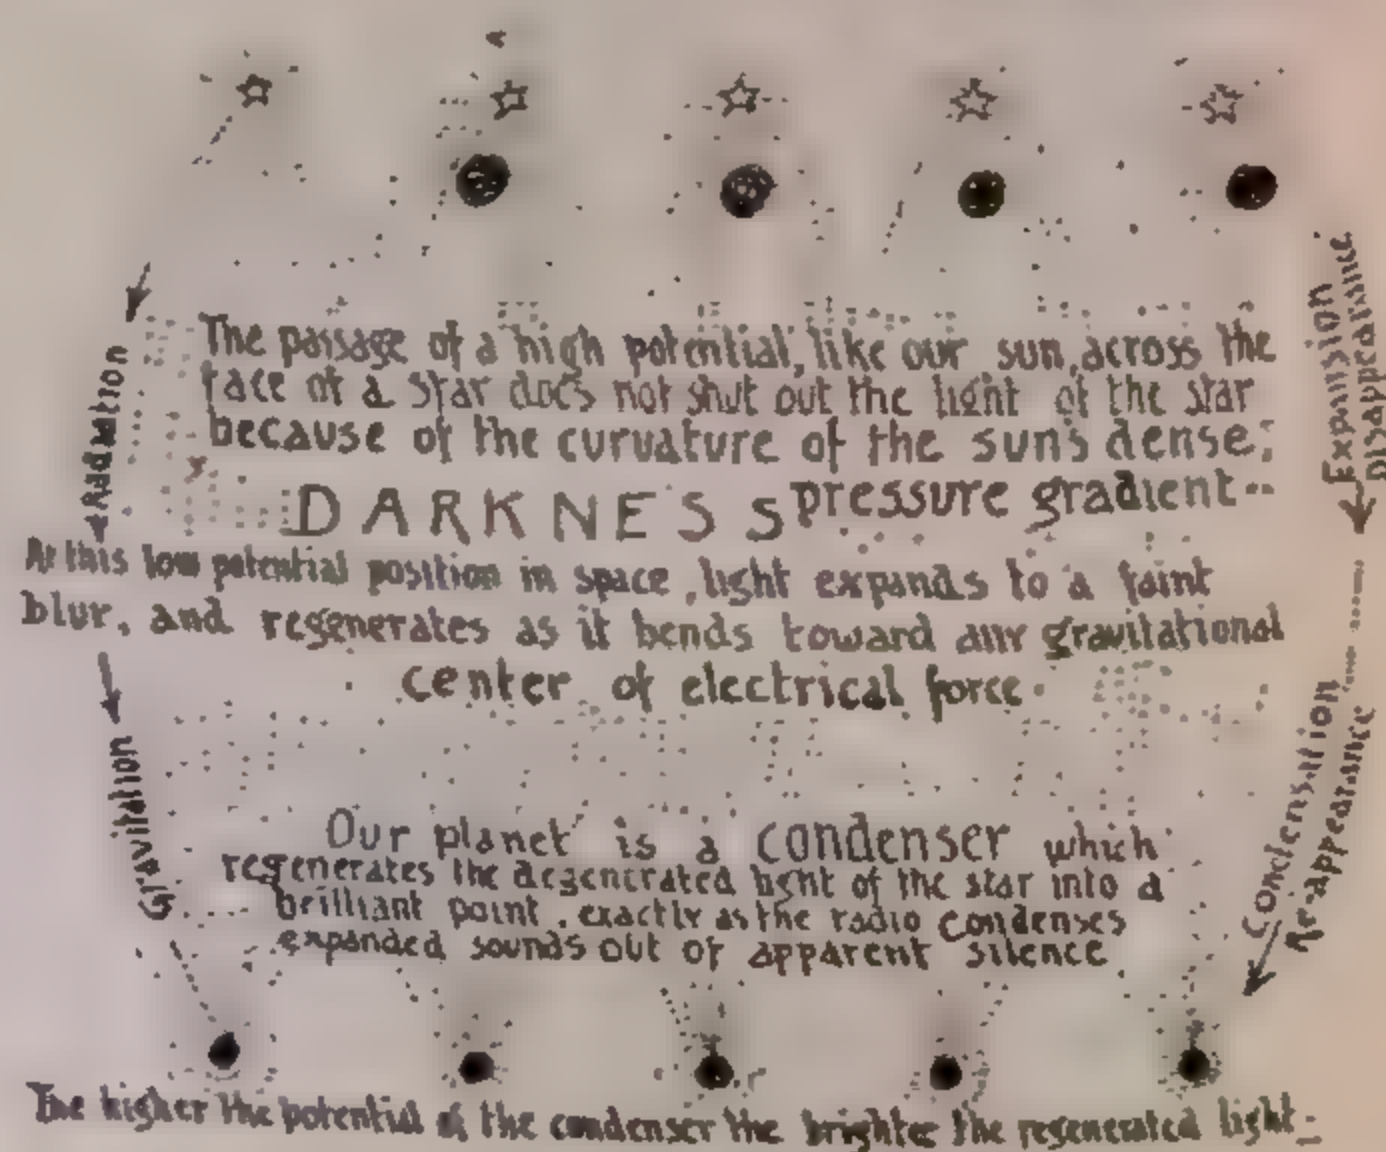 The passage of a high potential, like our sun, across the
face of a star does not shut out the light of the star
because of the curvature of the sun's dense
DARKNESS pressure gradient--
At this low potential position in space, light expands to a faint
blur, and regenerates as it bends toward any gravitational
center of electrical force
Radiation
Gravitation
Expansion
Disappearance
Condensation
Re-appearance
Our planet is a condenser which
regenerates the degenerated light of the star into a
brilliant point, exactly as the radio condenses
expanded sounds out of apparent silence
The higher the potential of the condenser the brighter the regenerated light-